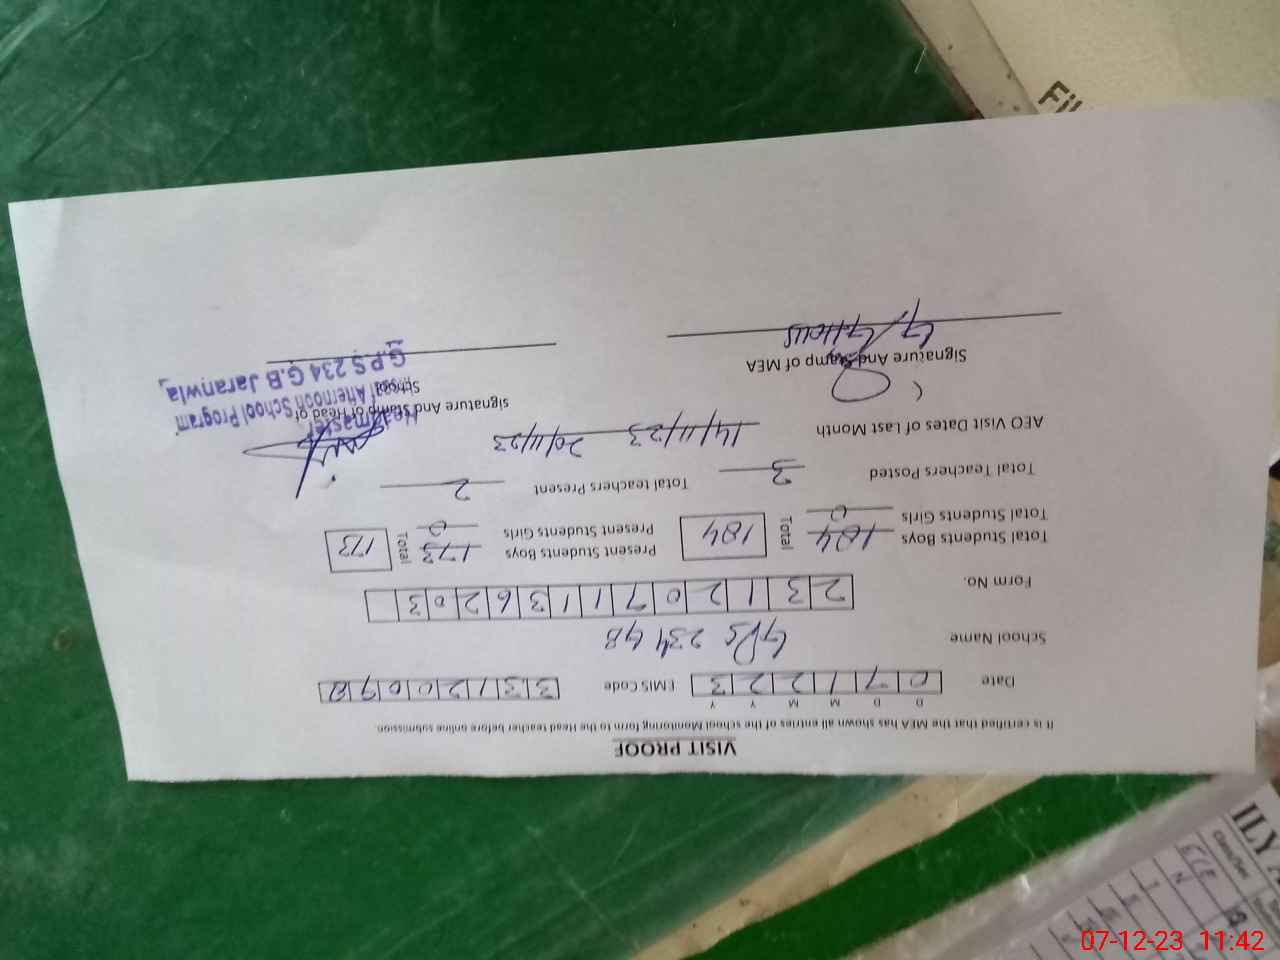 VISIT PROOF
It is certified that the MEA has shown all entries of the school Monitoring form to the Head teacher before online submission.
D D M M Y Y
Date 0 7 1 2 2 3 EMIS Code 3 3 1 2 0 0 9 8
School Name GPS 234 GB
Form No. 2 3 1 2 0 7 1 1 3 6 2 0 3
Total Students Boys 184 Total 184 Present Students Boys 173 Total 173
Total Students Girls 0 Present Students Girls 0
Total Teachers Posted 3 Total teachers Present 2
AEO Visit Dates of Last Month 14/11/23 20/11/23
Signature And Stamp of MEA
signature And Stamp of Head of School
Headmaster
Afternoon School Program
G.P.S 234 G.B Jaranwla
Fil
ILY
Class/Sec
07-12-23 11:42